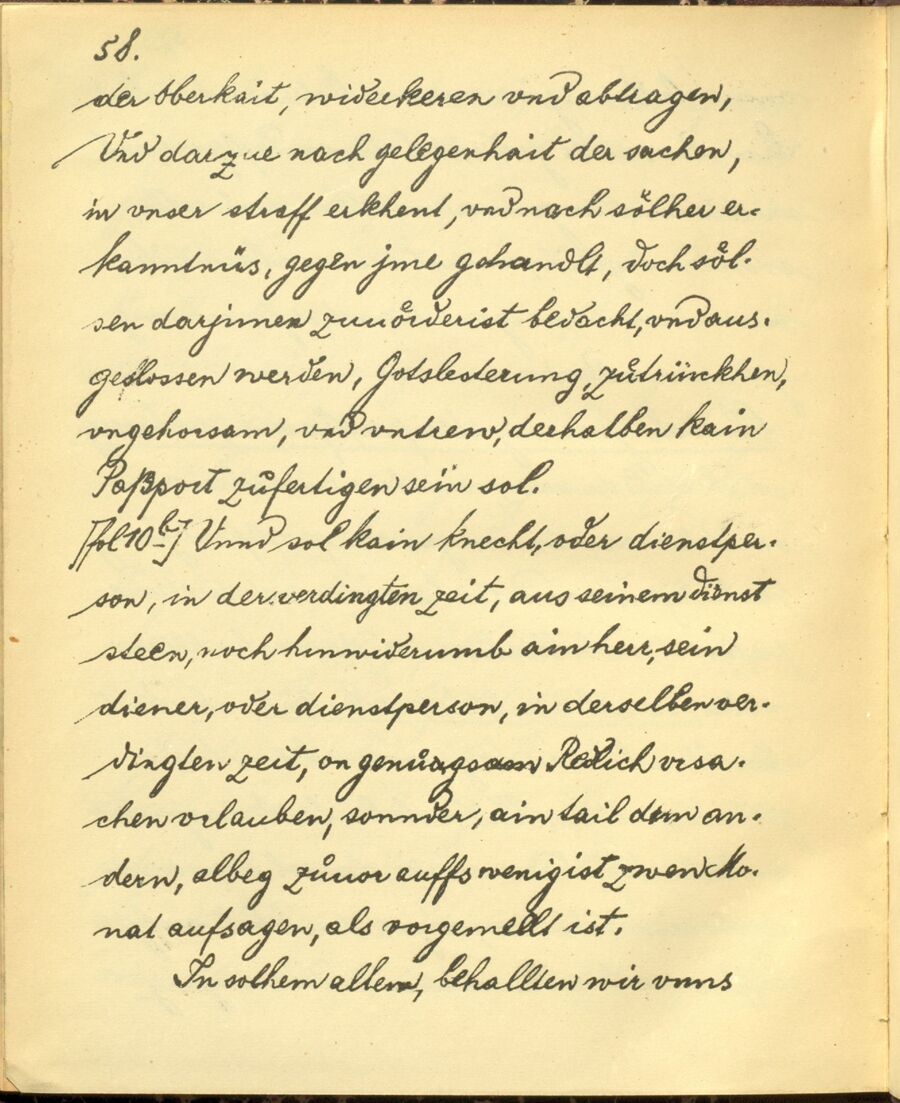 58.
der Oberkait, widerkeren vnd abtragen,
Vnd darzue nach gelegenhait der sachen,
in vnser straff erkhent, vnd nach sölher er-
kanntnüs, gegen jme gehandlt, doch söl-
len darjnnen zuuörderist bedacht, vnd aus-
geslossen werden, Gotslesterung, zůtrünckhen,
vngehorsam, vnd vntrew, derhalben kain
Paßport zůfertigen sein sol.
[fol 10b] Vnnd sol kain knecht, oder dienstper-
son, in der verdingten zeit, aus seinem dienst
steen, noch hinwiderumb ain herr, sein
diener, oder dienstperson, in derselben ver-
dingten zeit, on genůgsam Redlich vrsa-
chen vrlauben, sonnder, ain tail dem an-
dern, albeg zůuor auffs wenigist zwen Mo-
nat aufsagen, als vorgemellt ist.
In solhem allem, behallten wir vnns